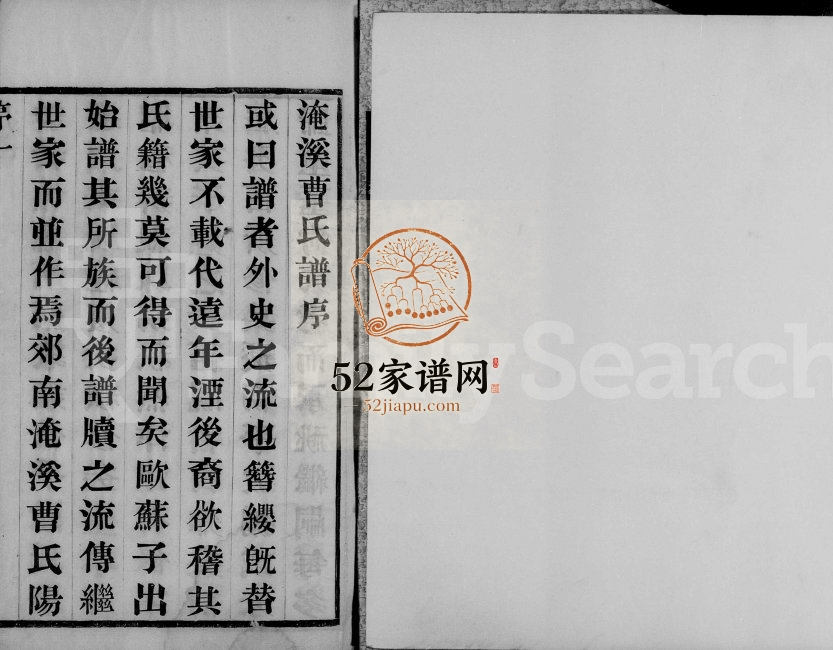 淹溪曹氏譜序
或曰譜者外史之流也簪纓旣替
世家不載代遠年湮後裔欲稽其
氏籍幾莫可得而聞矣歐蘇子出
始譜其所族而後譜牘之流傳繼
世家而並作焉郊南淹溪曹氏陽
序一
52家谱网
52jiapu.com
FamilySearch